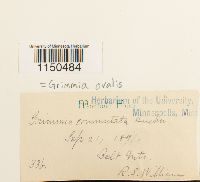 University of Minnesota Herbarium
1150484
= Grimmia ovalis
Herbarium of the
University of Minnesota
Minneapolis, Minn
Grimmia commutata Hueben
Sept 21, 189
Belt Mts.
R.S. Williams